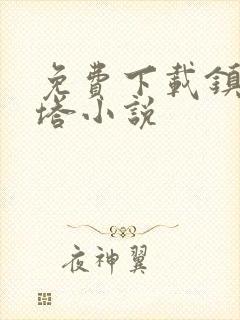 免費下載鎮
塔小說
夜神翼